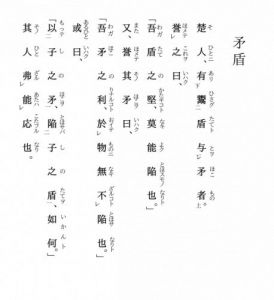 矛盾
楚人、有㆘鬻㆓盾与㆒㆑矛者㆖。
誉㆑之曰、
「吾盾之堅、莫能陥也。」
又、誉㆓其矛㆒曰、
「吾矛之利、於㆑物無㆑不㆑陥也。」
或曰、
「以㆓子之矛㆒陥㆓子之盾㆒、如何。」
其人弗㆑能㆑応也。